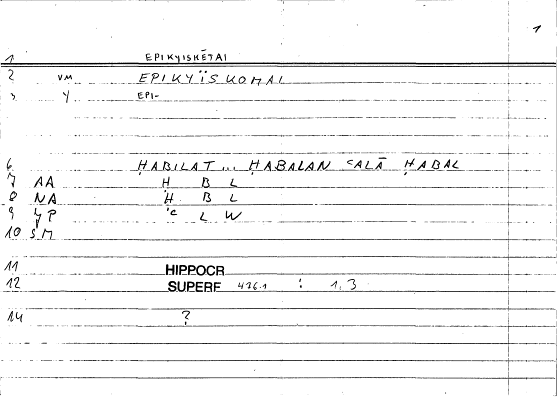 1
1 EPIKYISKETAI
2 VM EPIKYÏSKOMAI
3 Y EPI-
6 ḤABILAT ... ḤABALAN ʿALĀ ḤABAL
7 AA Ḥ B L
8 NA Ḥ B L
9 YP ʿ L W
10 SM
11 HIPPOCR
12 SUPERF 426.1 : 1,3
14 ?